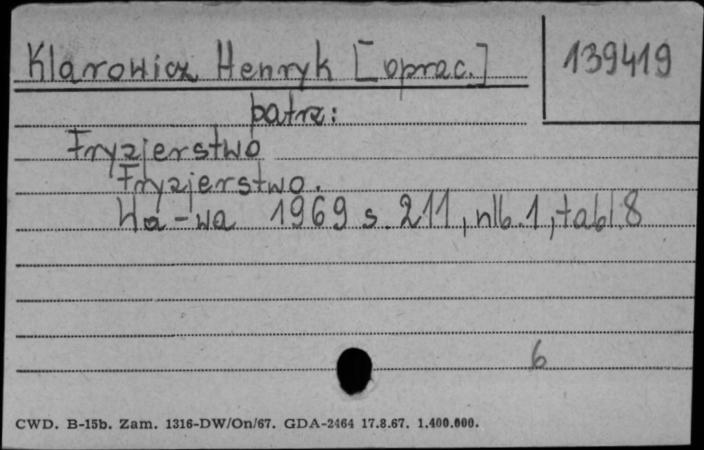 Klarowicz Henryk [oprac.]
139419
patrz:
Fryzjerstwo
Fryzjerstwo.
Wa-wa 1969 s. 211, nlb. 1, tabl. 8
6
CWD. B-15b. Zam. 1316-DW/On/67. GDA-2464 17.8.67. 1.400.000.